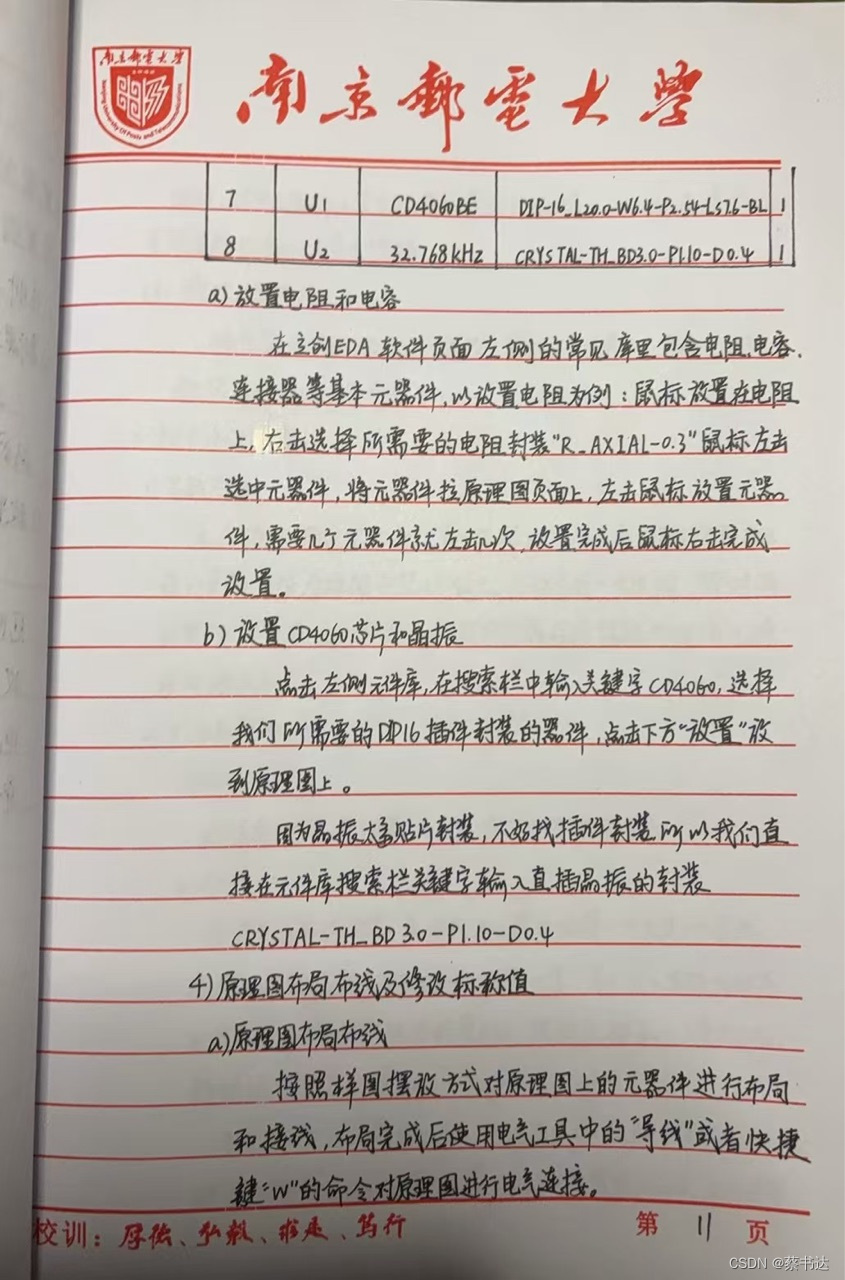 南京邮电大学
Nanjing University Of Posts and Telecommunications
南京郵電大學
7 U1 CD4060BE DIP-16_L20.0-W6.4-P2.54-LS7.6-BL 1
8 U2 32.768kHz CRYSTAL-TH_BD3.0-P1.10-D0.4 1
a)放置电阻和电容
在立创EDA 软件页面左侧的常见库里包含电阻、电容、
连接器等基本元器件,以放置电阻为例:鼠标放置在电阻
上,右击选择所需要的电阻封装"R_AXIAL-0.3"鼠标左击
选中元器件,将元器件拉原理图页面上,左击鼠标放置元器
件,需要几个元器件就左击几次,放置完成后鼠标右击完成
放置。
b)放置CD4060芯片和晶振
点击左侧元件库,在搜索栏中输入关键字CD4060,选择
我们所需要的DIP16插件封装的器件,点击下方"放置"放
到原理图上。
因为晶振大多贴片封装,不好找插件封装所以我们直
接在元件库搜索栏关键字输入直插晶振的封装
CRYSTAL-TH_BD3.0-P1.10-D0.4
4)原理图布局布线及修改标称值
a)原理图布局布线
按照样图摆放方式对原理图上的元器件进行布局
和接线,布局完成后使用电气工具中的"导线"或者快捷
键"W"的命令对原理图进行电气连接。
校训:厚德、弘毅、求是、笃行 第 11 页
CSDN @蔡书达